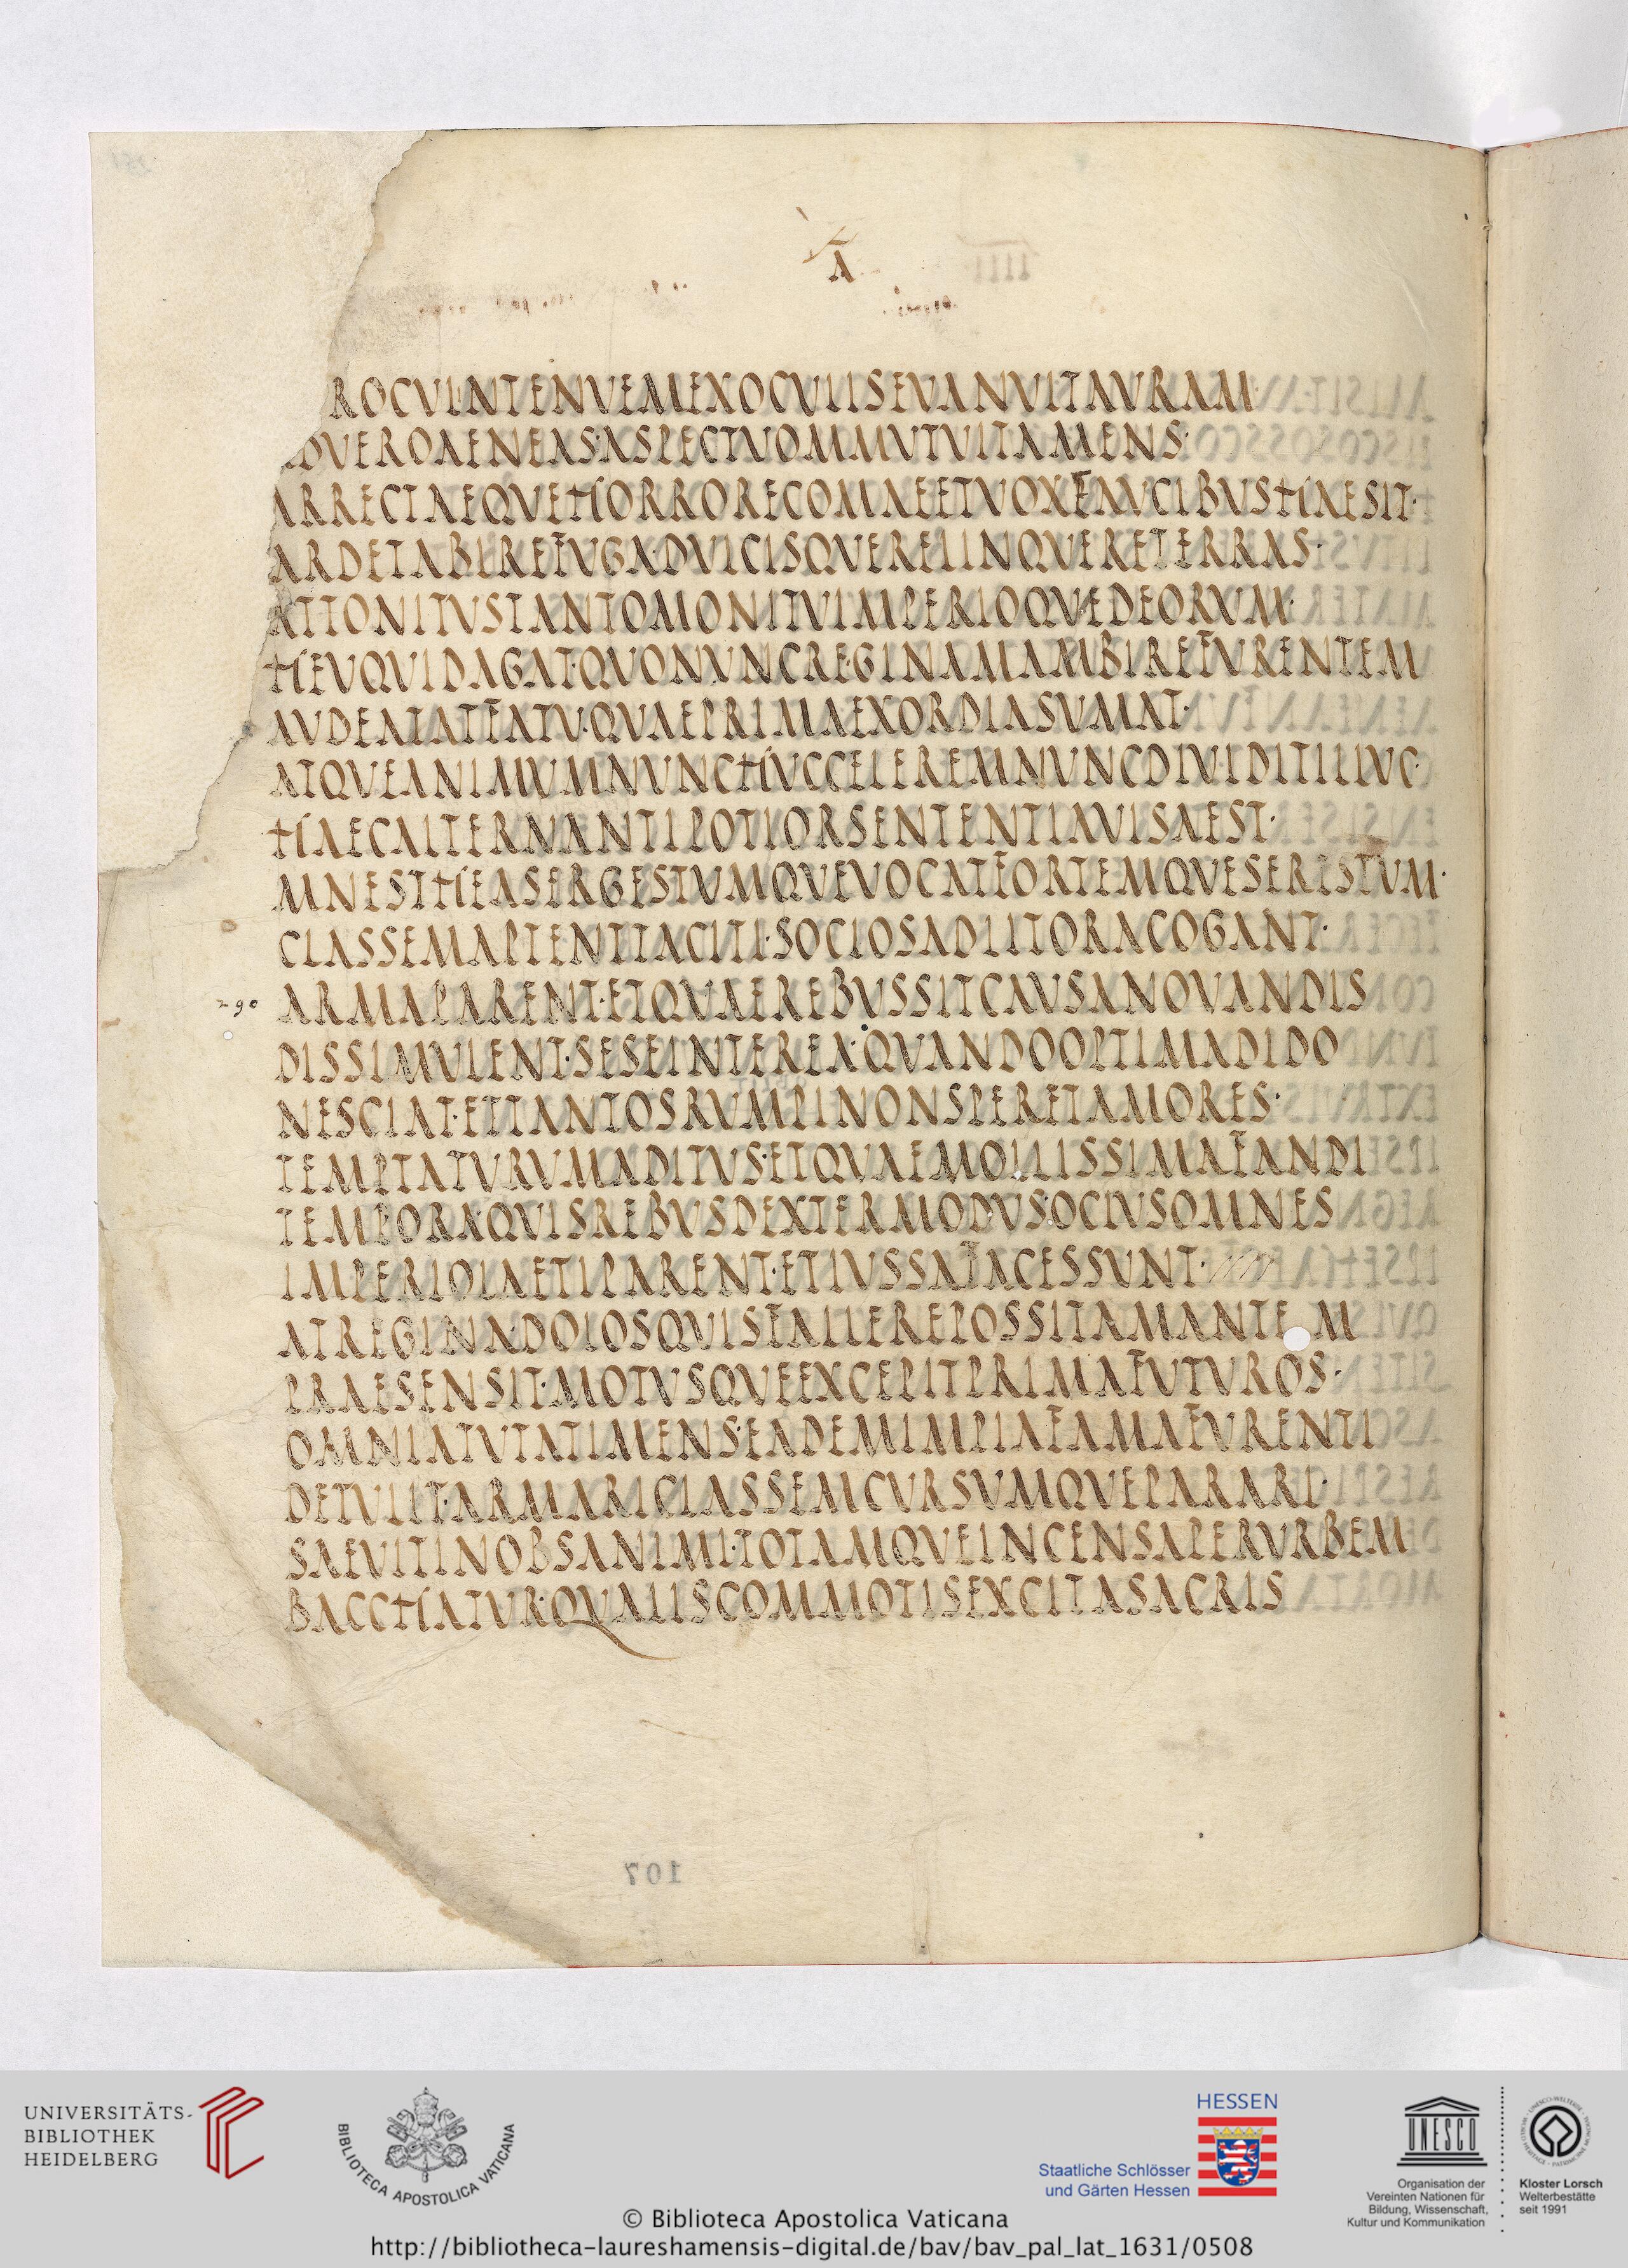 A
ROCVLINTENVEMEXOCVLISEVANVITAVRAM
DVEROAENEAS·ASPECTVOMMVTVITAMENS·
ARRECTAEQVEHORRORECOMAEETVOXFAVCIBVSHAESIT·
ARDETABIREFVGA·DVLCISQVERELINQVERETERRAS·
ATTONITVSTANTOMONITVIMPERIOQVEDEORVM·
HEVQVIDAGAT·QVONVNCREGINAMAMBIREFVRENTEM
AVDEATATFATV·QVAEPRIMAEXORDIASVMAT·
ATQVEANIMVMNVNCHVCCELEREMNVNCDIVIDITILLVC·
HAECALTERNANTIPOTIORSENTENTIAVISAEST·
MNESTHEASERGESTVMQVEVOCATFORTEMQVESERESTVM·
CLASSEMAPTENTTACITI·SOCIOSADLITORACOGANT·
290 ARMAPARENT·ETQVAEREBVSSITCAVSANOVANDIS
DISSIMVLENT·SESEINTEREA·QVANDOOPTIMADIDO
NESCIAT·ETTANTOSRVMPINONSPERETAMORES·
TEMPTATVRVMADITVS·ETQVAEMOLLISSIMAFANDI
TEMPORA·QVISREBVSDEXTERMODVS·OCIVSOMNES
IMPERIOLAETIPARENT·ETIVSSAFACESSVNT·
ATREGINA·DOLOSQVISFALLEREPOSSITAMANTEM
PRAESENSIT·MOTVSQVEEXCEPITPRIMAFVTVROS·
OMNIATVTATIMENS·EADEMIMPIAFAMAFVRENTI
DETVLIT·ARMARICLASSEMCVRSVMQVEPARARI·
SAEVITINOBSANIMI·TOTAMQVEINCENSAPERVRBEM
BACCHATVR·QVALISCOMMOTISEXCITASACRIS
107
UNIVERSITÄTS-
BIBLIOTHEK
HEIDELBERG
BIBLIOTECA APOSTOLICA VATICANA
HESSEN
Staatliche Schlösser
und Gärten Hessen
UNESCO
Organisation der
Vereinten Nationen für
Bildung, Wissenschaft,
Kultur und Kommunikation
Kloster Lorsch
Welterbestätte
seit 1991
© Biblioteca Apostolica Vaticana
http://bibliotheca-laureshamensis-digital.de/bav/bav_pal_lat_1631/0508